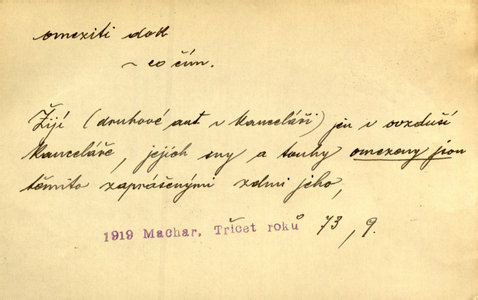 omeziti dok
~ co čím.
Žijí (druhové aut. v kanceláři) jen v ovzduší
kanceláře, jejich sny a touhy omezeny jsou
těmito zaprášenými zdmi jeho,
1919 Machar, Třicet roků 73, 9.